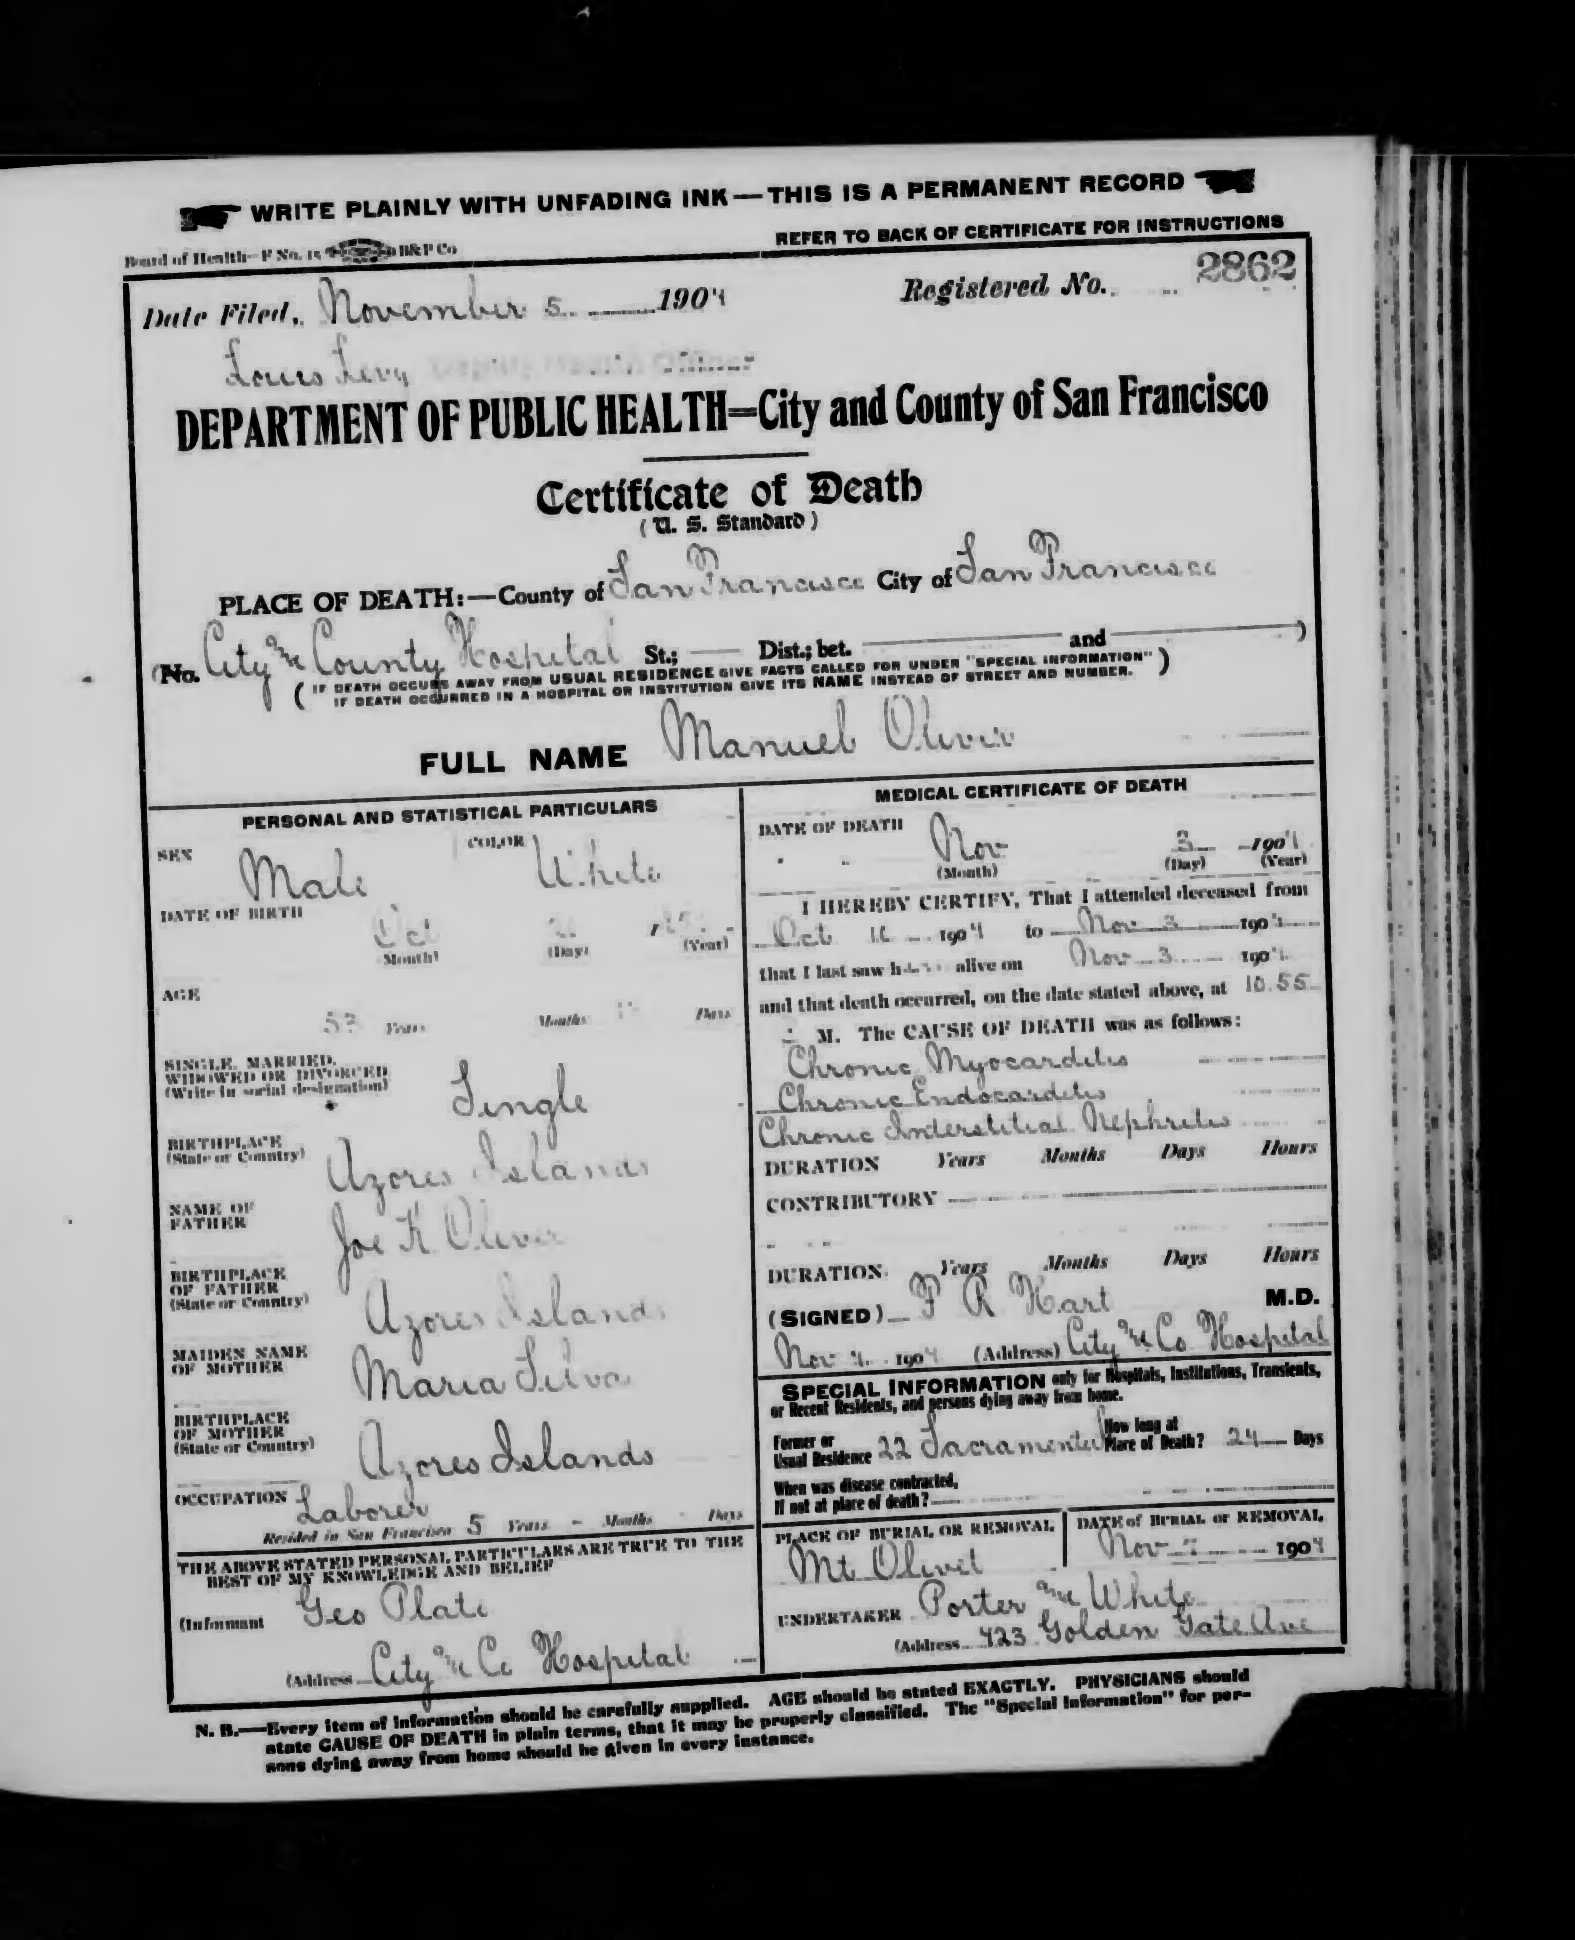 WRITE PLAINLY WITH UNFADING INK—THIS IS A PERMANENT RECORD
Board of Health—F No. 15 B&P Co
REFER TO BACK OF CERTIFICATE FOR INSTRUCTIONS
Date Filed, November 5 1904
Registered No. 2862
Louis Levy Deputy Health Officer
DEPARTMENT OF PUBLIC HEALTH=City and County of San Francisco
Certificate of Death
(U. S. Standard)
PLACE OF DEATH:—County of San Francisco City of San Francisco
(No. City and County Hospital St.; Dist.; bet. and )
(IF DEATH OCCURS AWAY FROM USUAL RESIDENCE GIVE FACTS CALLED FOR UNDER "SPECIAL INFORMATION"
IF DEATH OCCURRED IN A HOSPITAL OR INSTITUTION GIVE ITS NAME INSTEAD OF STREET AND NUMBER.)
FULL NAME Manuel Oliver
PERSONAL AND STATISTICAL PARTICULARS
SEX Male COLOR White
DATE OF BIRTH Oct
(Month) (Day) (Year)
AGE
53 Years Months Days
SINGLE, MARRIED,
WIDOWED OR DIVORCED
(Write in social designation) Single
BIRTHPLACE
(State or Country) Azores Islands
NAME OF
FATHER Joe K Oliver
BIRTHPLACE
OF FATHER
(State or Country) Azores Islands
MAIDEN NAME
OF MOTHER Maria Silva
BIRTHPLACE
OF MOTHER
(State or Country) Azores Islands
OCCUPATION Laborer
Resided in San Francisco 5 Years - Months - Days
THE ABOVE STATED PERSONAL PARTICULARS ARE TRUE TO THE
BEST OF MY KNOWLEDGE AND BELIEF
(Informant Geo Plate
(Address City and Co Hospital
MEDICAL CERTIFICATE OF DEATH
DATE OF DEATH Nov 3 1904
(Month) (Day) (Year)
I HEREBY CERTIFY, That I attended deceased from
Oct 1904 to Nov 3 1904
that I last saw him alive on Nov 3 1904
and that death occurred, on the date stated above, at 10.55
M. The CAUSE OF DEATH was as follows:
Chronic Myocarditis
Chronic Endocarditis
Chronic Interstitial Nephritis
DURATION Years Months Days Hours
CONTRIBUTORY
DURATION Years Months Days Hours
(SIGNED) F R Hart M.D.
Nov 4 1904 (Address) City and Co. Hospital
SPECIAL INFORMATION only for Hospitals, Institutions, Transients,
or Recent Residents, and persons dying away from home.
Former or
Usual Residence 22 Sacramento How long at
Place of Death? 24 Days
When was disease contracted,
If not at place of death?
PLACE OF BURIAL OR REMOVAL Mt Olivet
DATE of BURIAL or REMOVAL Nov 1904
UNDERTAKER Porter and White
(Address 423 Golden Gate Ave
N. B.—Every item of information should be carefully supplied. AGE should be stated EXACTLY. PHYSICIANS should
state CAUSE OF DEATH in plain terms, that it may be properly classified. The "Special Information" for per-
sons dying away from home should be given in every instance.